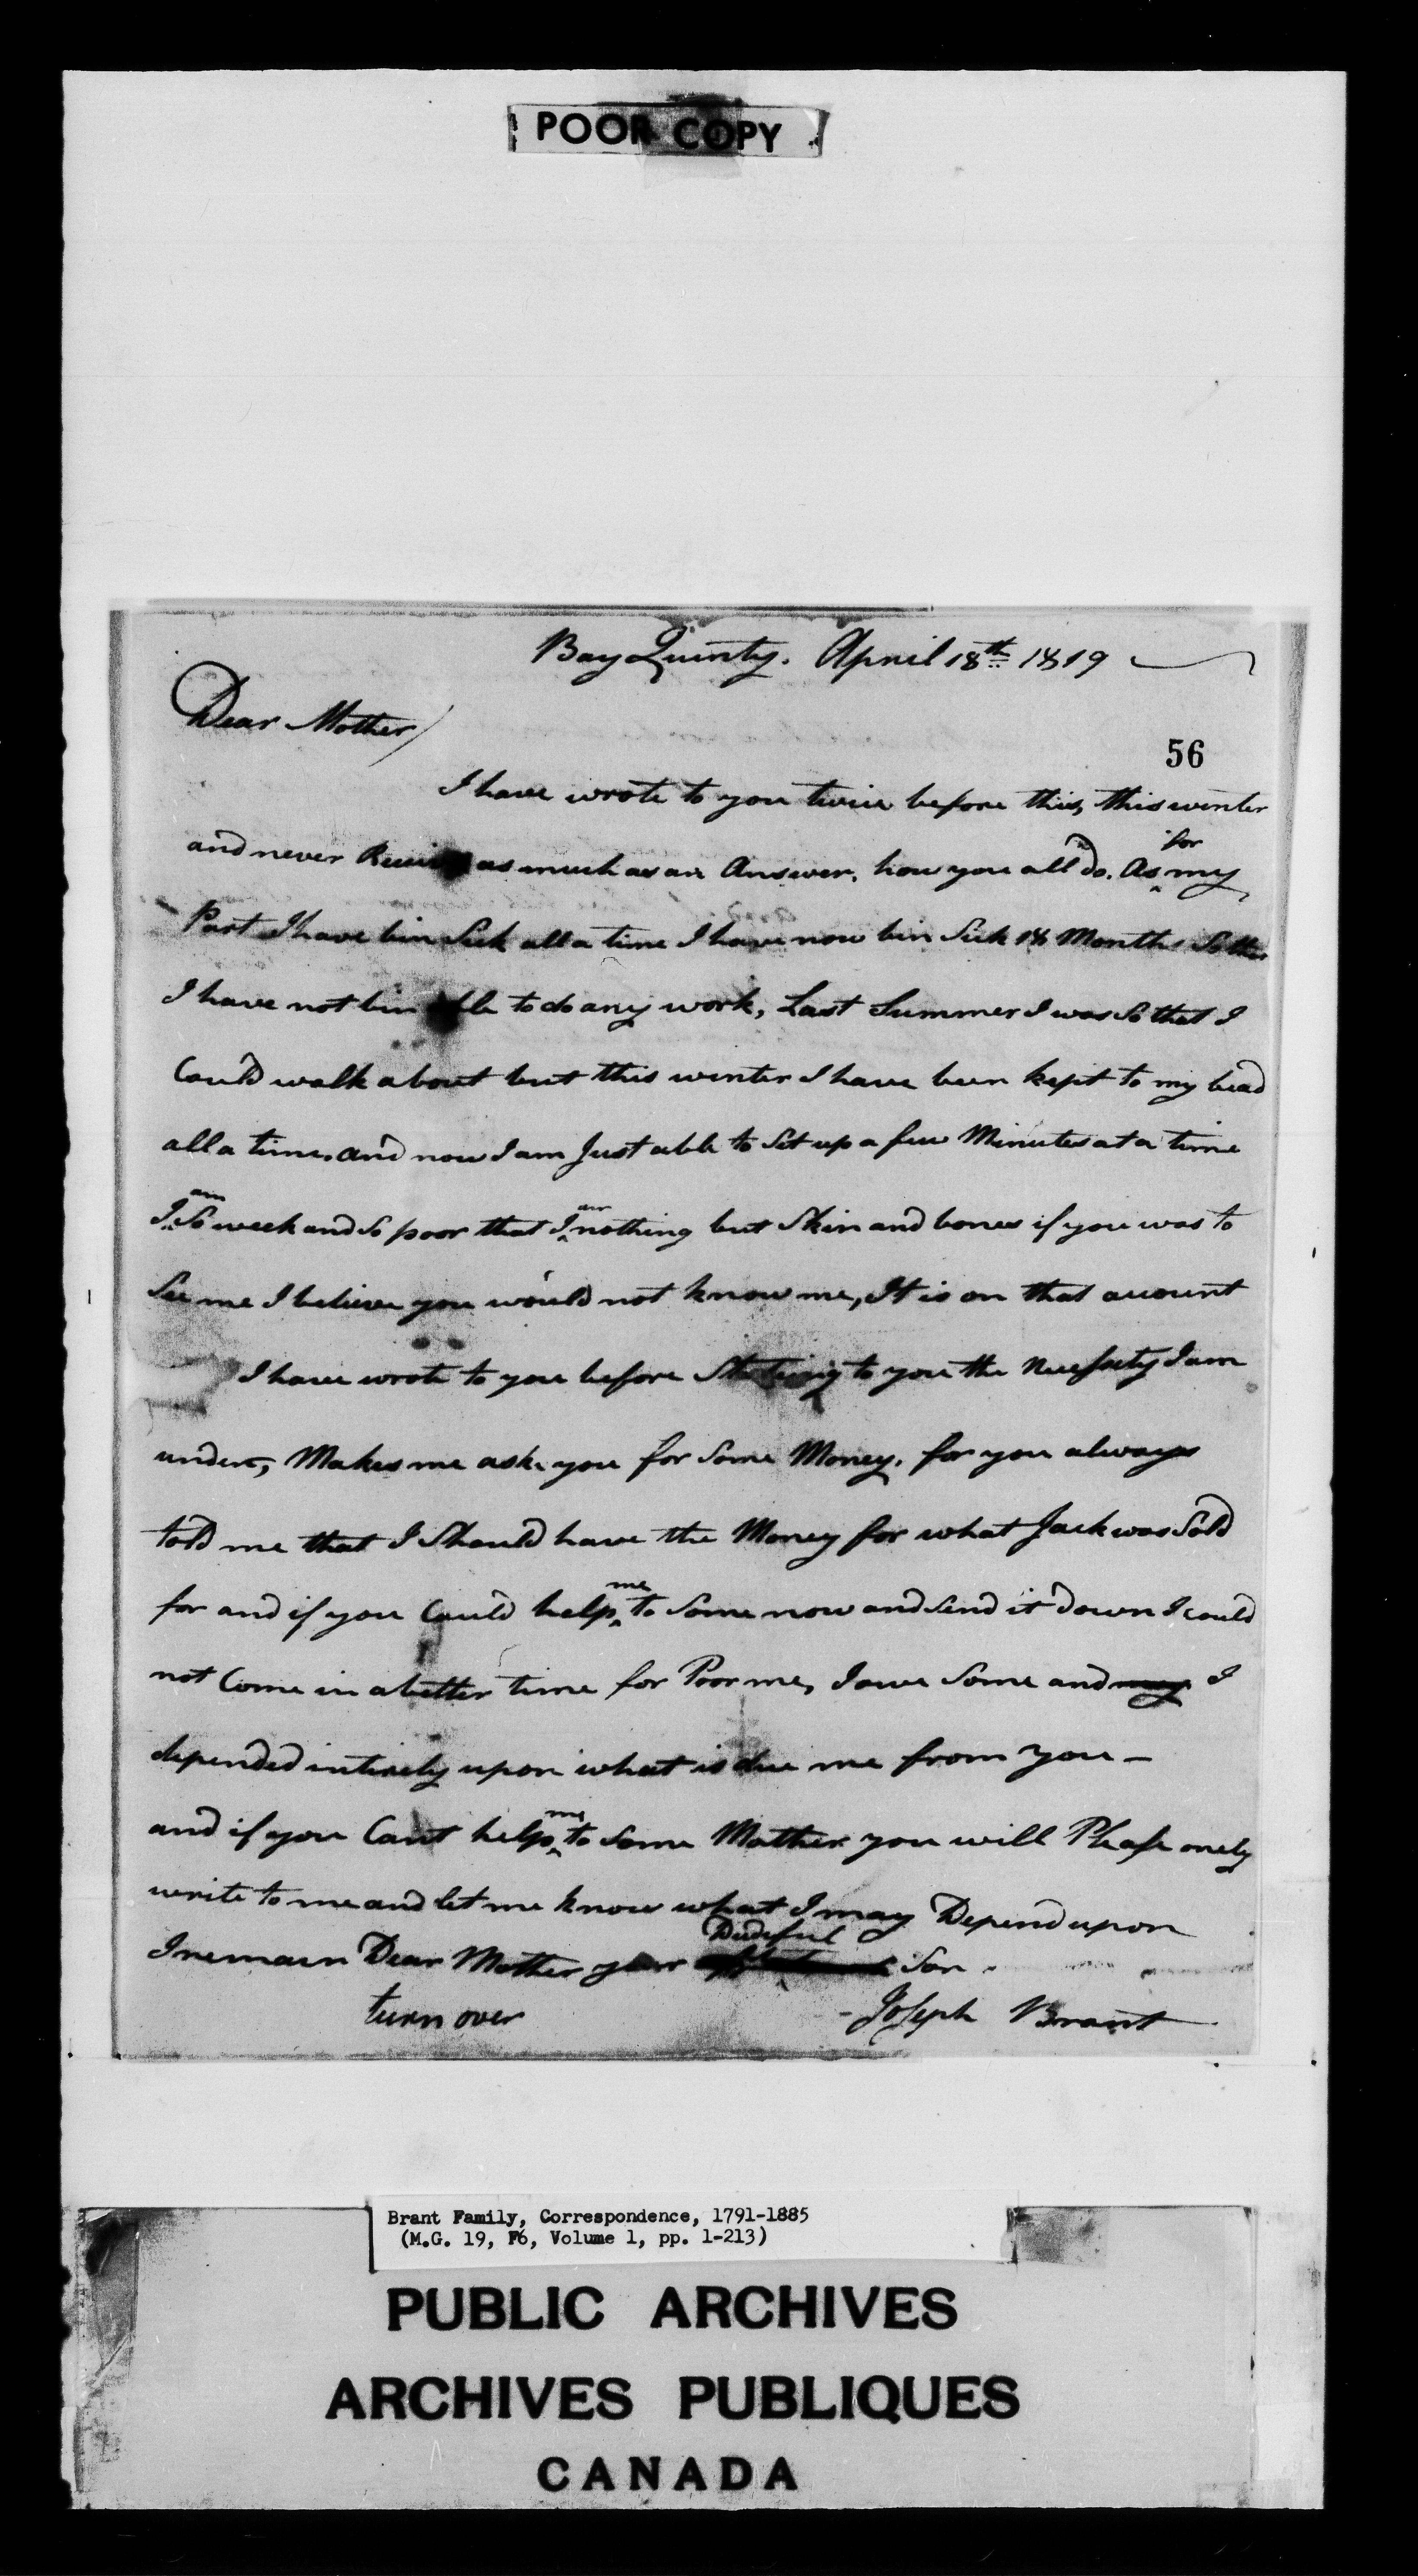 POOR COPY
Bay Quinty. April 18th 1819
Dear Mother/
56
I have wrote to you twice before this, this winter
for
and never as much as an Answer, how you all do. As my
Part I have bin Sick all a time I have now bin Sick 18 Months So that
I have not bin able to do any work, Last Summer I was So that I
Could walk about but this winter I have been kept to my bead
all a time. and now I am Just able to Set up a few Minutes at a time
am am
I So week and So poor that I nothing but Skin and bones if you was to
See me I believe you would not know me, It is on that account
I have wrote to you before Stating to you the Necessity I am
under, Makes me ask you for Some Money. for you always
told me that I Should have the Money for what Jack was Sold
me
for and if you Could help to Some now and Send it down I could
not Come in a better time for Poor me, I owe Some and may I
depended intirely upon what is due me from you —
me
and if you Cant help to Some Mother you will Please onely
write to me and let me know what I may Depend upon
Dudeful
I remain Dear Mother your Son.
turn over - Joseph Brant
Brant Family, Correspondence, 1791-1885
(M.G. 19, F6, Volume 1, pp. 1-213)
PUBLIC ARCHIVES
ARCHIVES PUBLIQUES
CANADA